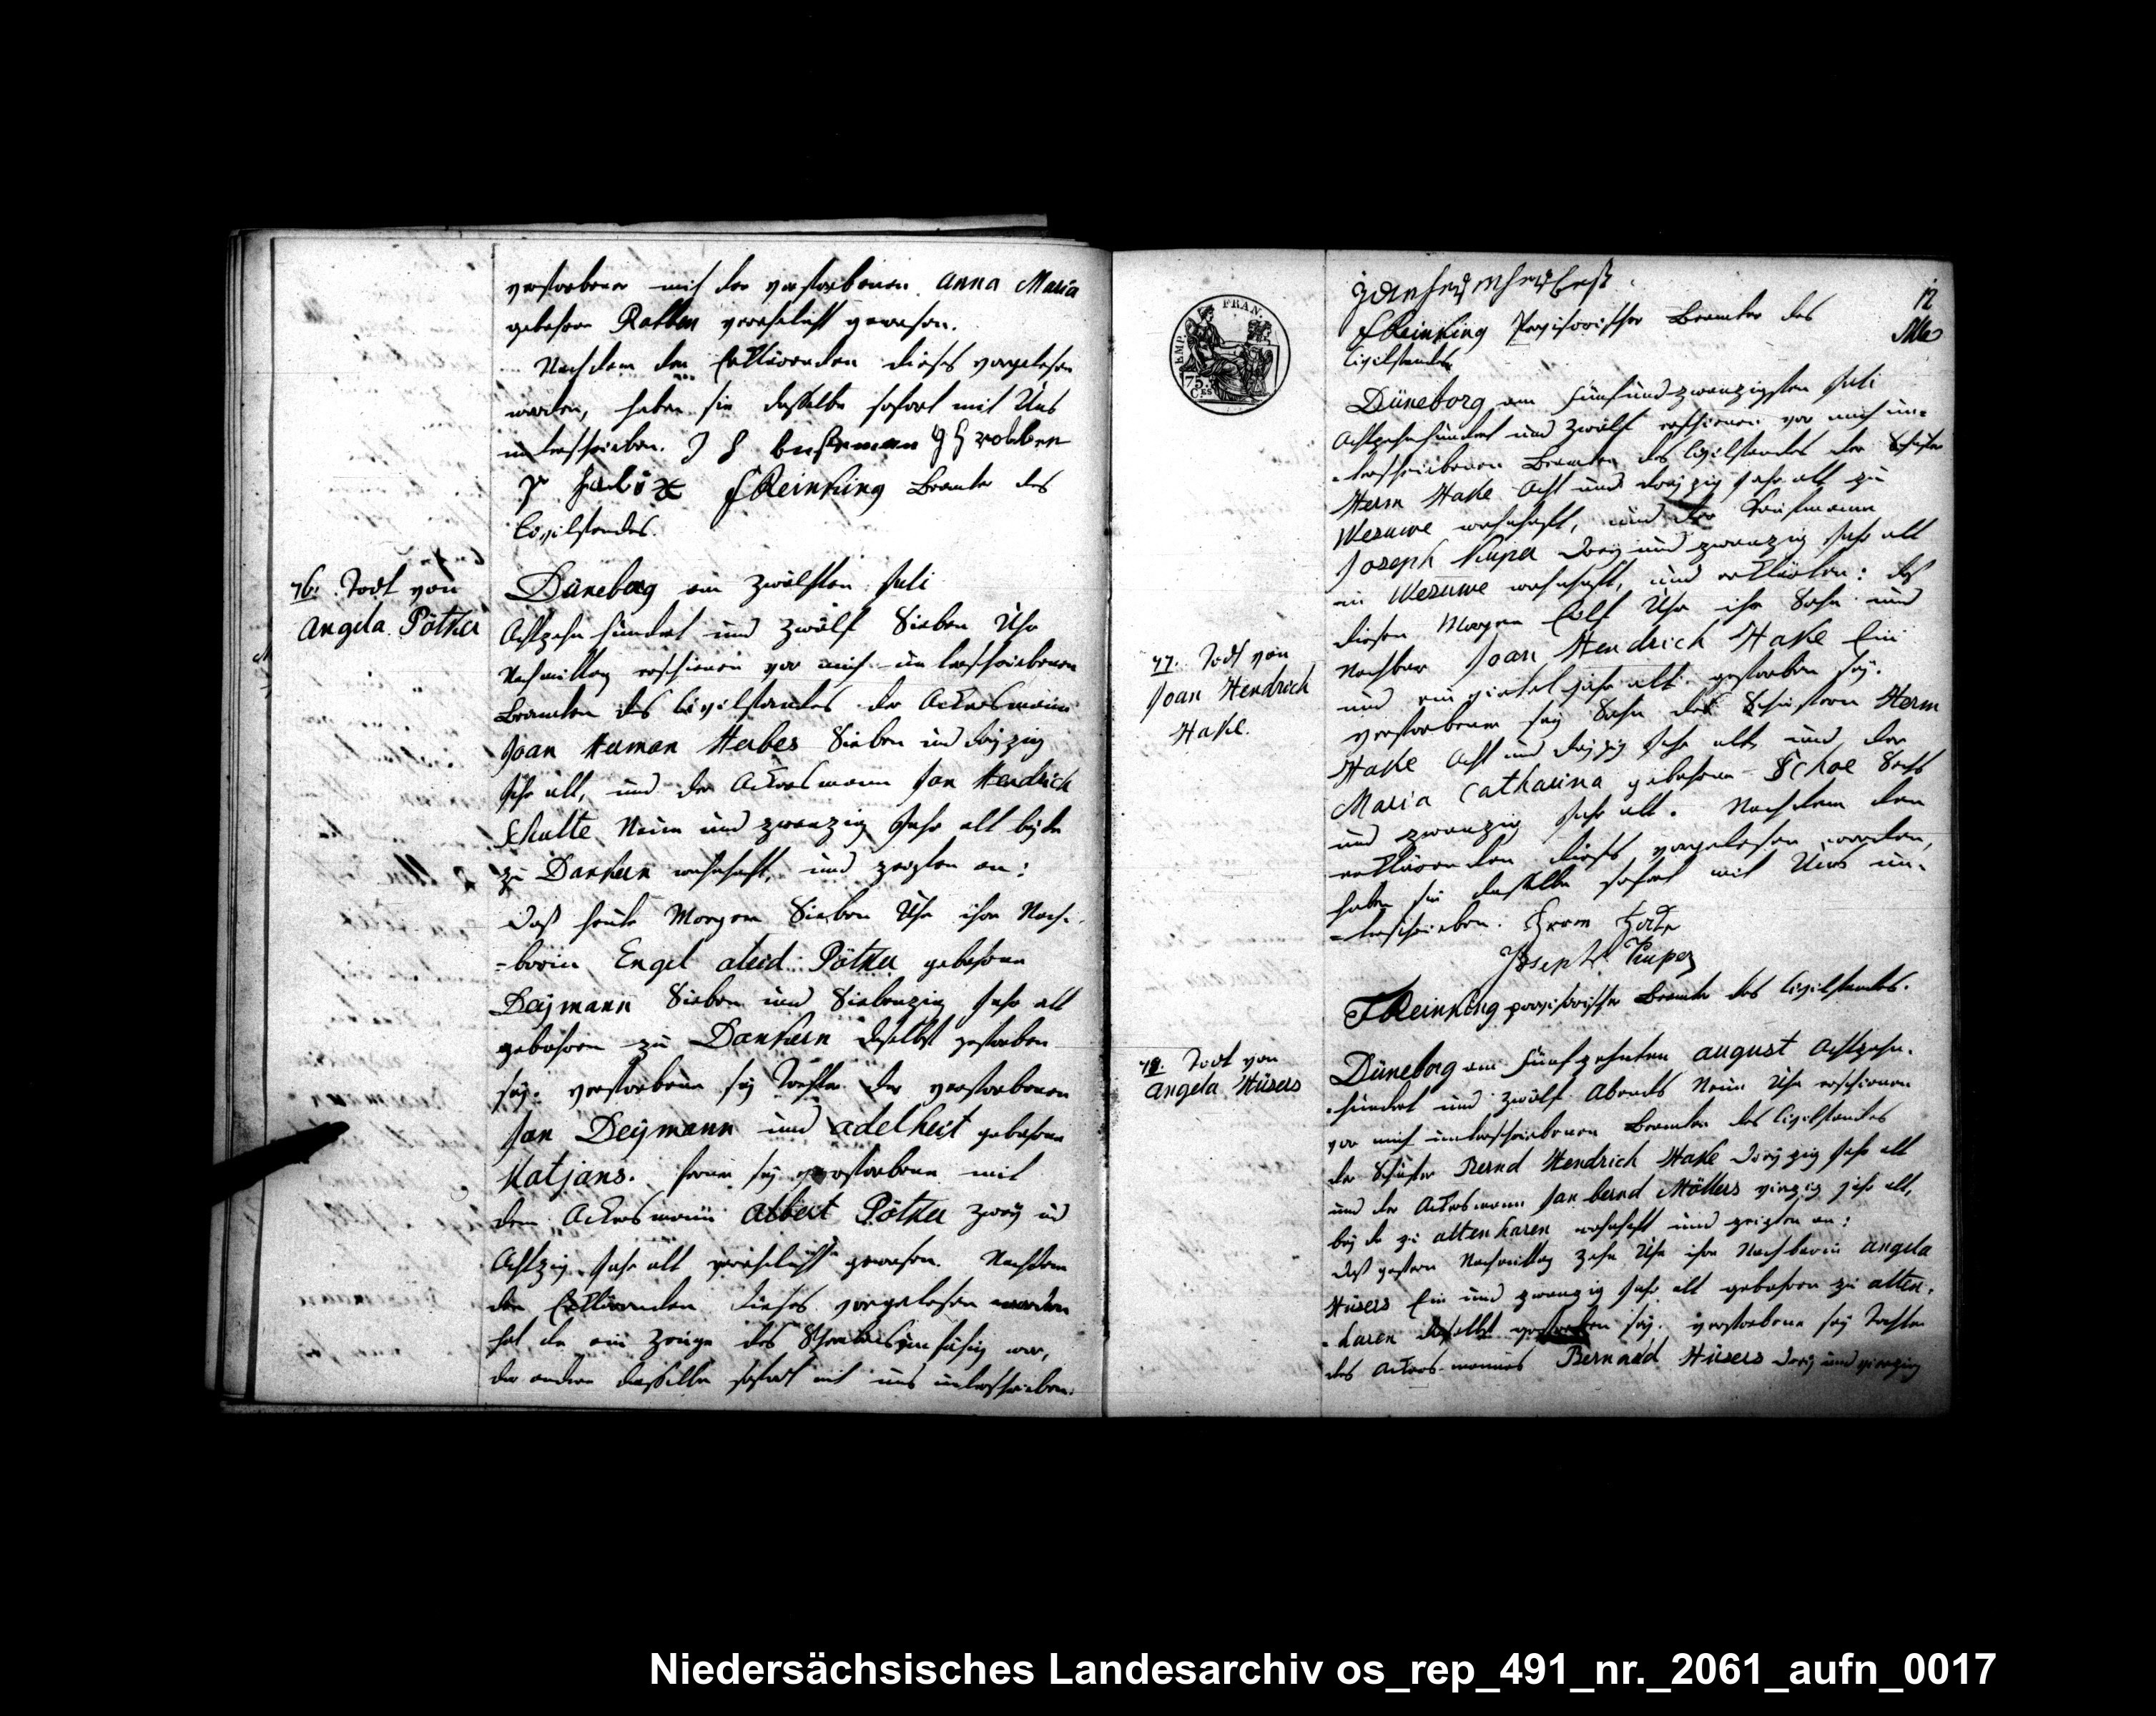 verstorbener mit der verstorbenen Anna Maria
gebohren Robben verehelicht gewesen.
Nachdem den Erklärenden dieses vorgelesen
worden, haben sie dasselbe sofort mit Uns
unterschrieben. J H busseman G H robben
FReinking Beamter des
Civilstandes.
76. Todt von
Angela Pötker
Düneborg am zwölften Juli
Achtzehn hundert und zwölf Sieben Uhr
Nachmittag erschienen vor mich unterschriebenen
Beamten des Civilstandes der Ackersmann
Joan Herman Herbes Sieben und dreyzig
Jahr alt, und der Ackersmann Jan Hendrich
Schulte Neun und zwanzig Jahr alt beyde
zu Dankern wohnhaft, und zeigten an:
Daß heute Morgen Sieben Uhr ihre Nach-
-barin Engel aleid Pötker gebohrne
Deijmann Sieben und Siebenzig Jahr alt
gebohren zu Dankern daselbst gestorben
sey. verstorbene sey Tochter der verstorbenen
Jan Deijmann und adelheit gebohrne
Katjans. ferner sey verstorbene mit
dem Ackersmann Albert Pötker zwey und
Achtzig Jahr alt verehelicht gewesen. Nachdem
den Erklärenden dieses vorgelesen worden
hat da ein Zeuge des Schreibens unfähig war,
der andere dasselbe sofort mit uns unterschrieben.
EMP. FRAN.
75.
Ces
12
FReinking Provisorischer Beamter des
Civilstandes
77. Todt von
Joan Hendrich
Hake.
Düneborg am fünfundzwanzigsten Juli
Achtzehnhundert und zwölf erschienen vor mich un-
-terschriebenen Beamten des Civilstandes der Schuster
Herm Hake Acht und dreyzig Jahr alt zu
Wesuwe wohnhaft, und der Kaufmann
Joseph Kuper drey und zwanzig Jahr alt
in Wesuwe wohnhaft, und erklärten: daß
diesen Morgen Eilf Uhr ihr Sohn und
Nachbar Joan Hendrich Hake Ein
und ein viertel Jahr alt gestorben sey.
verstorbener sey Sohn des Schustern Herm
Hake Acht und dreyzig Jahr alt, und der
Maria Catharina gebohrne Schoe Sechs
und zwanzig Jahr alt. Nachdem den
erklärenden dieses vorgelesen worden,
haben sie dasselbe sofort mit Uns un-
-terschrieben. Herm Hake
Joseph Kuper
FReinking provisorischer Beamter des Civilstandes.
78. Todt von
Angela Hüsers
Düneborg am fünfzehnten august Achtzehn-
-hundert und zwölf Abends Neun Uhr erschienen
vor mich unterschriebenen Beamten des Civilstandes
der Schuster Bernd Hendrich Hake dreyzig Jahr alt
und der Ackersmann Jan bernd Möllers vierzig Jahr alt,
beyde zu altenharen wohnhaft und zeigten an:
daß gestern Nachmittag zehn Uhr ihre Nachbarin angela
Hüsers Ein und zwanzig Jahr alt gebohren zu alten-
-haren daselbst gestorben sey. verstorbene sey Tochter
des Ackersmannes Bernard Hüsers drey und vierzig
Niedersächsisches Landesarchiv os_rep_491_nr._2061_aufn_0017